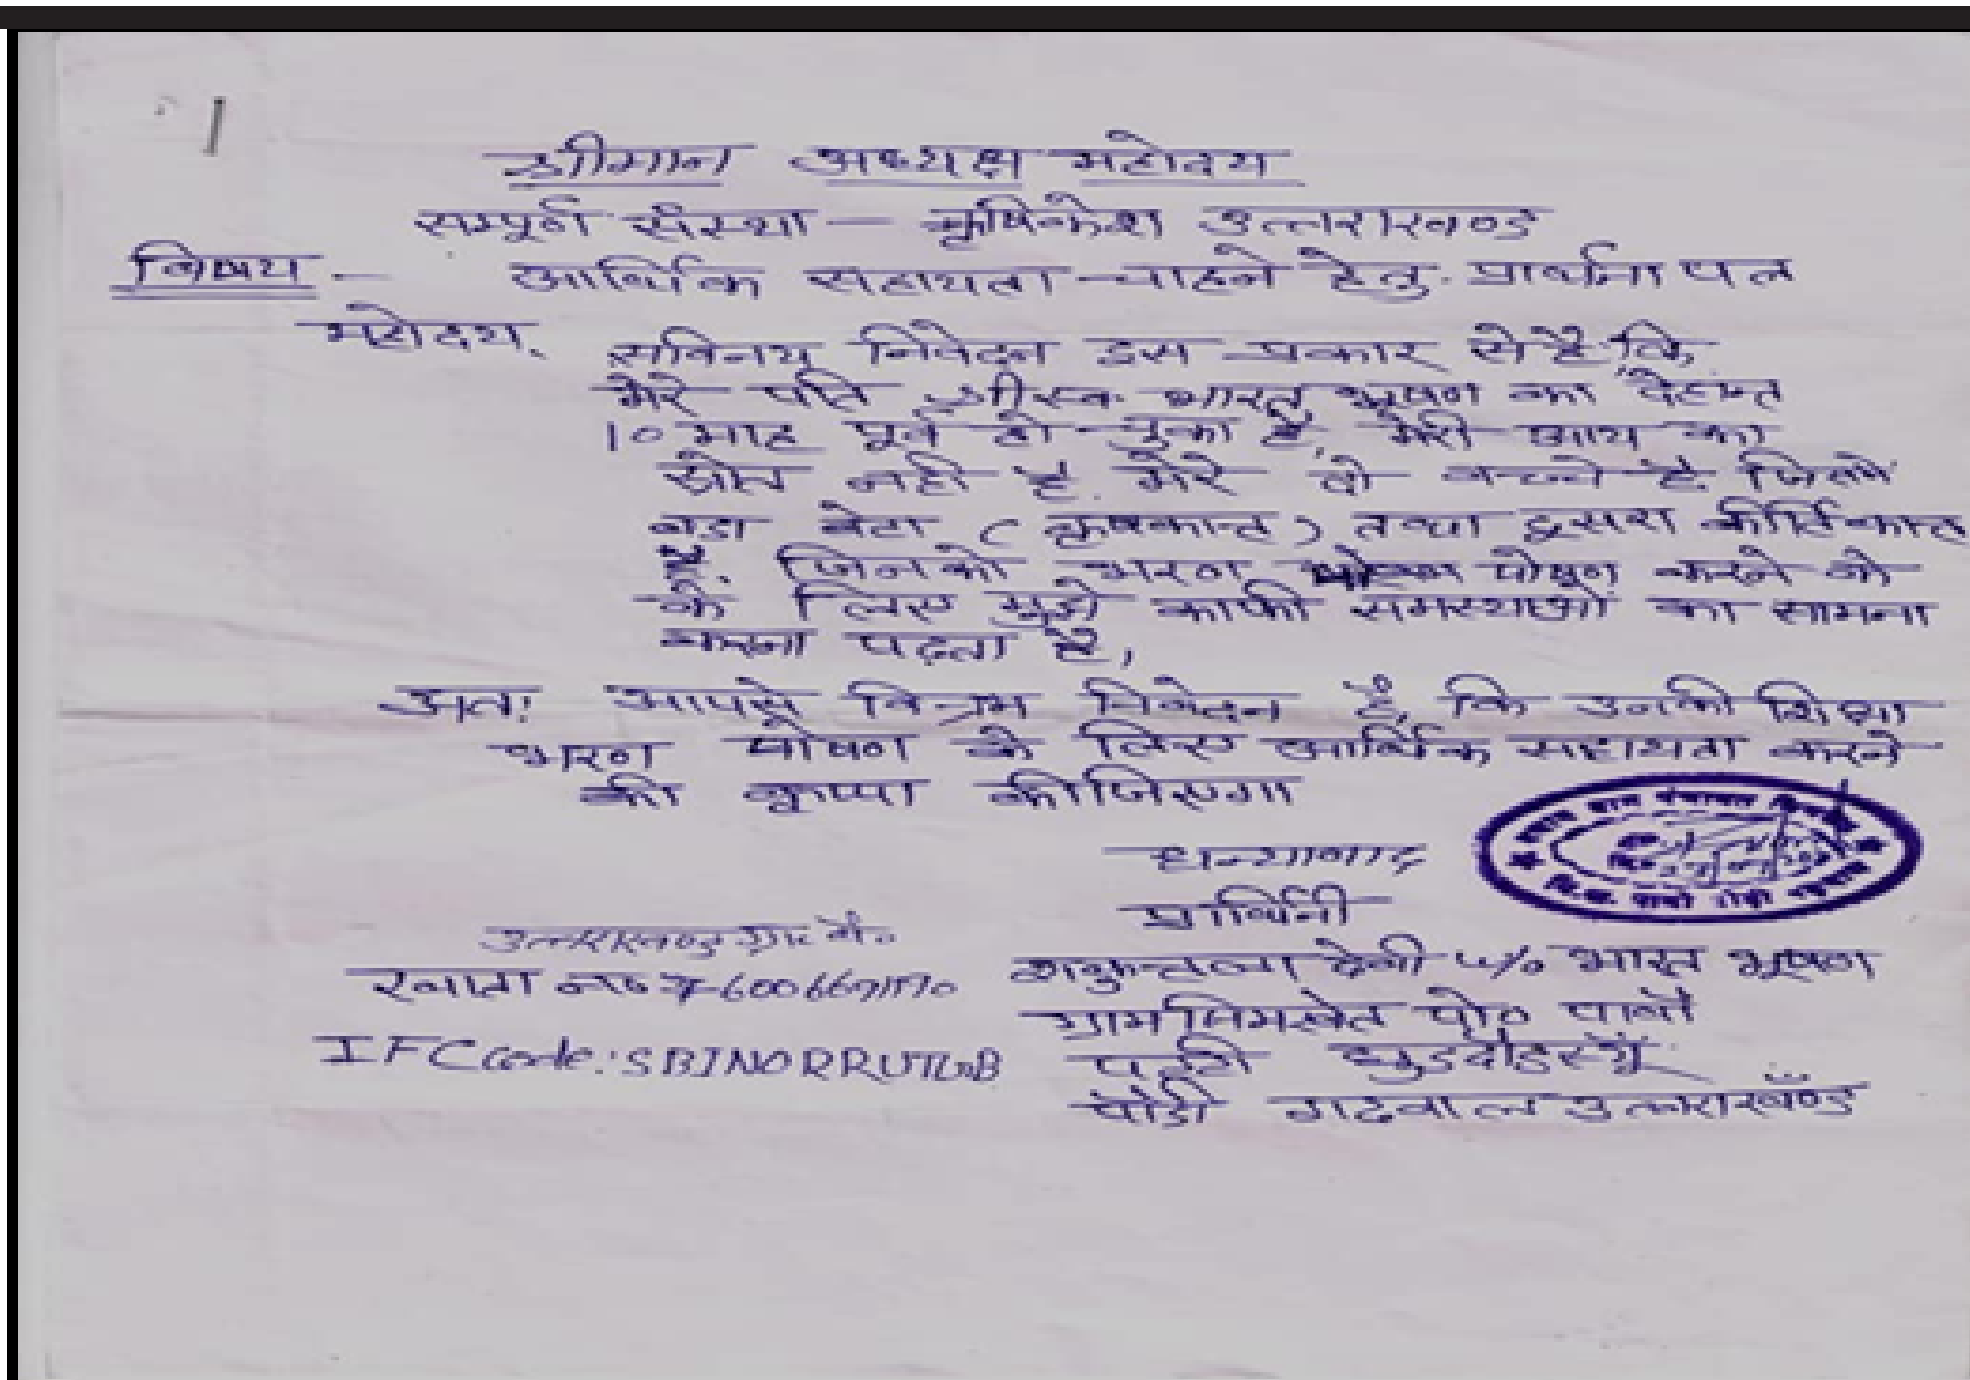 श्रीमान अध्यक्ष महोदय
सम्पूर्ण संस्था – ऋषिकेश उत्तराखण्ड
विषय – आर्थिक सहायता चाहने हेतु प्रार्थना पत्र
महोदय,
सविनय निवेदन इस प्रकार से है कि
मेरे पति भारत भूषण का देहान्त
10 माह पूर्व हो चुका है, मेरी आय का
स्रोत नही है. मेरे दो बच्चे है
बडा बेटा ( ) तथा दूसरा कीर्तिकान्त
है. जिनको भरण पोषण करने के
के लिए मुझे काफी का सामना
करना पड़ता है,
अतः आपसे विनम्र निवेदन है, कि उनकी शिक्षा
भरण पोषण के लिए आर्थिक सहायता करने
की कृपा कीजिएगा
धन्यावाद
प्रार्थिनी
शकुन्तला देवी भारत भूषण
ग्राम पो० पाबौ
पट्टी
पौडी गढवाल उत्तराखण्ड
उत्तराखण्ड
खाता
IFC Code: